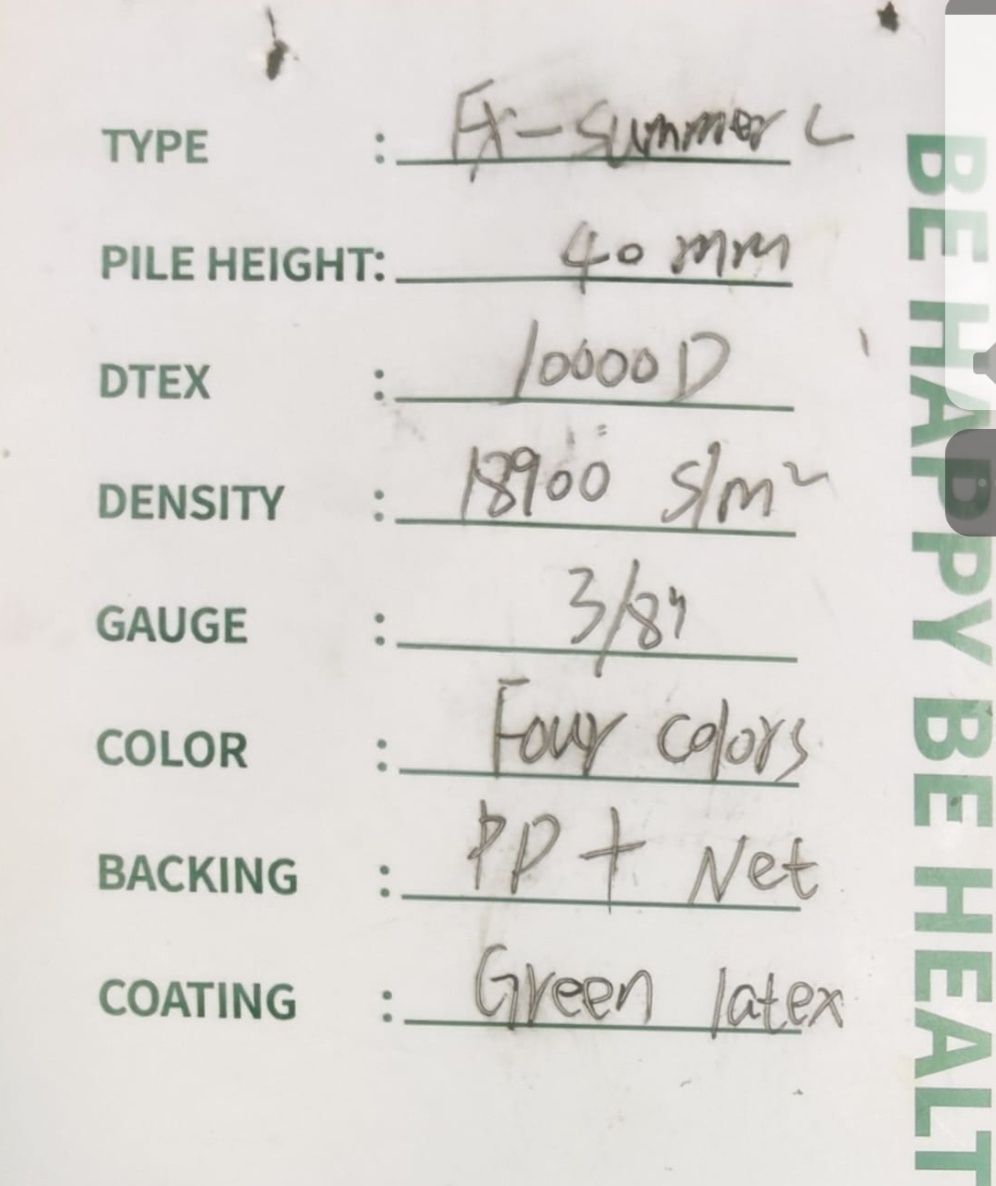 TYPE : FX-Summer C
PILE HEIGHT: 40 mm
DTEX : 10000 D
DENSITY : 18900 s/m²
GAUGE : 3/8"
COLOR : Four colors
BACKING : PP + Net
COATING : Green latex
BE HAPPY BE HEALT